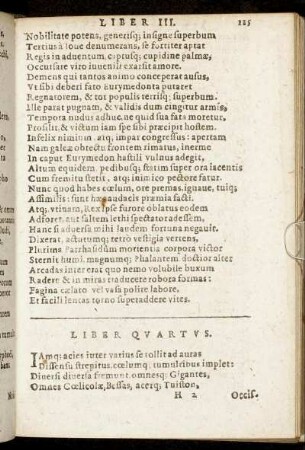 LIBER III. 115
Nobilitate potens, generisq; insigne superbum
Tertius à Ioue denumerans, se fortiter aptat
Regis in aduentum, captusq; cupidine palmæ,
Occursare viro iuuenili exarsit amore.
Demens qui tantos animo conceperat ausus,
Vt sibi deberi fato Eurymedonta putaret
Regnatorem, & tot populis terrisq; superbum.
Ille parat pugnam, & validis dum cingitur armis,
Tempora nudus adhuc, ne quid sua fata moretur,
Prosilit, & victum iam spe sibi præcipit hostem.
Infelix nimium, atq; impar congressus: apertam
Nam galeæ obrectu frontem rimatus, inerme
In caput Eurymedon hastili vulnus adegit,
Altum equidem, pedibusq; statim super ora iacentis
Cum fremitu stetit, atq; inimico pectore fatur.
Nunc quod habes cœlum, ore premas, ignaue, tuiq;
Assimilis: sunt hæc audacis præmia facti.
Atq; vtinam, Rex ipse furore oblatus eodem
Adforet, aut saltem lethi spectator adessem,
Hanc si aduersa mihi laudem fortuna negauit.
Dixerat, actutumq; retrò vestigia vertens,
Plurima Parrhasidûm morientia corpora victor
Sternit humi, magnumq; Phalantem doctior alter
Arcadas inter erat quo nemo volubile buxum
Radere & in miras traducere robora formas:
Fagina cælato vel vasa polire labore,
Et facili lentas torno superaddere vites.
LIBER QVARTVS.
IAmq; acies inter varius se tollit ad auras
Dissensu strepitus, cœlumq; tumultibus implet:
Diuersi diuersa fremunt, omnesq; Gigantes,
Omnes Cœlicolæ, Bessas, acerq; Tuiston,
H 2 Occis.